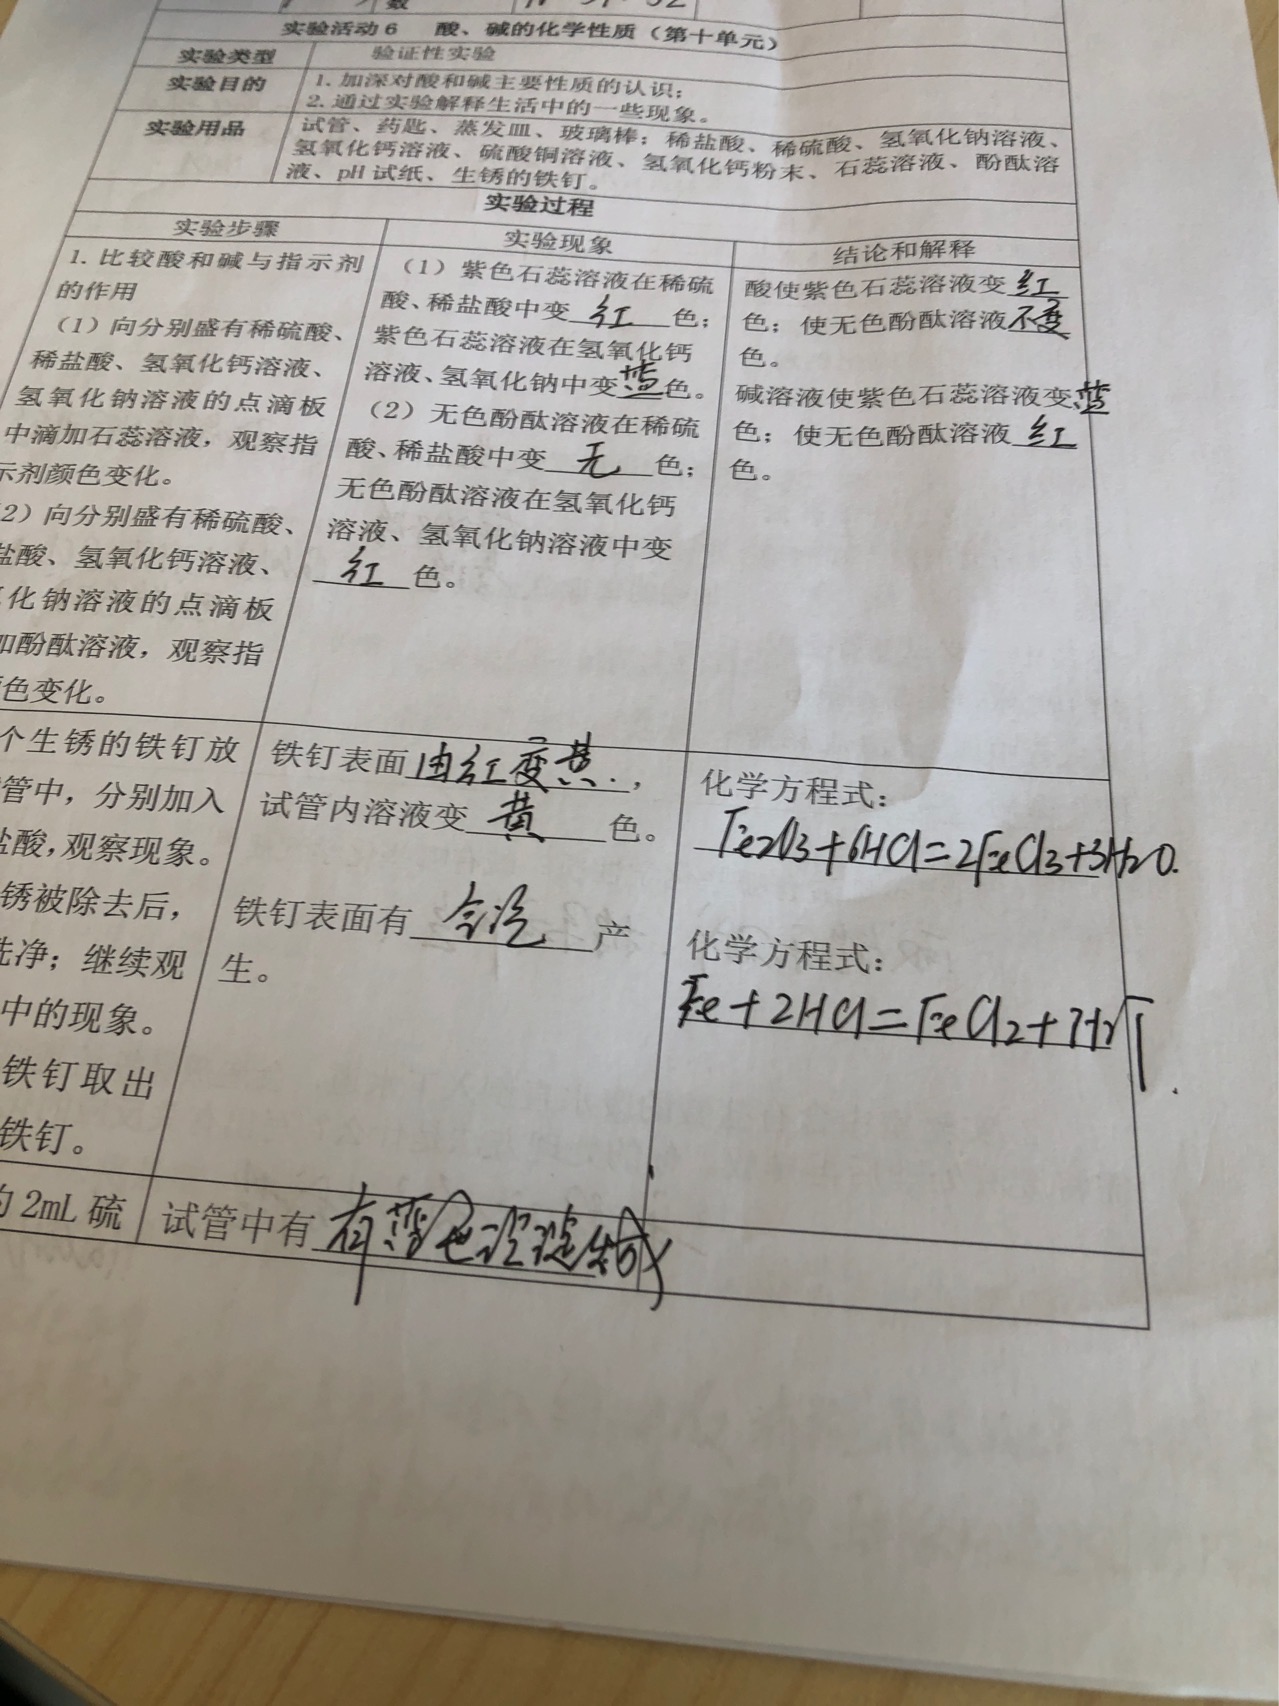 数
实验活动6 酸、碱的化学性质（第十单元）
实验类型 验证性实验
实验目的 1. 加深对酸和碱主要性质的认识；
2. 通过实验解释生活中的一些现象。
实验用品 试管、药匙、蒸发皿、玻璃棒；稀盐酸、稀硫酸、氢氧化钠溶液、
氢氧化钙溶液、硫酸铜溶液、氢氧化钙粉末、石蕊溶液、酚酞溶
液、pH试纸、生锈的铁钉。
实验过程
实验步骤 实验现象 结论和解释
1. 比较酸和碱与指示剂
的作用
（1）向分别盛有稀硫酸、
稀盐酸、氢氧化钙溶液、
氢氧化钠溶液的点滴板
中滴加石蕊溶液，观察指
示剂颜色变化。
2）向分别盛有稀硫酸、
盐酸、氢氧化钙溶液、
化钠溶液的点滴板
加酚酞溶液，观察指
色变化。
（1）紫色石蕊溶液在稀硫
酸、稀盐酸中变 红 色；
紫色石蕊溶液在氢氧化钙
溶液、氢氧化钠中变蓝色。
（2）无色酚酞溶液在稀硫
酸、稀盐酸中变 无 色；
无色酚酞溶液在氢氧化钙
溶液、氢氧化钠溶液中变
红 色。
酸使紫色石蕊溶液变 红
色；使无色酚酞溶液不变
色。
碱溶液使紫色石蕊溶液变蓝
色；使无色酚酞溶液 红
色。
个生锈的铁钉放
管中，分别加入
盐酸，观察现象。
锈被除去后，
洗净；继续观
中的现象。
铁钉取出
铁钉。
铁钉表面由红变黄.，
试管内溶液变 黄 色。
铁钉表面有 气泡 产
生。
化学方程式：
Fe2O3+6HCl=2FeCl3+3H2O.
化学方程式：
Fe+2HCl=FeCl2+H2↑.
的2mL硫 试管中有有蓝色沉淀生成